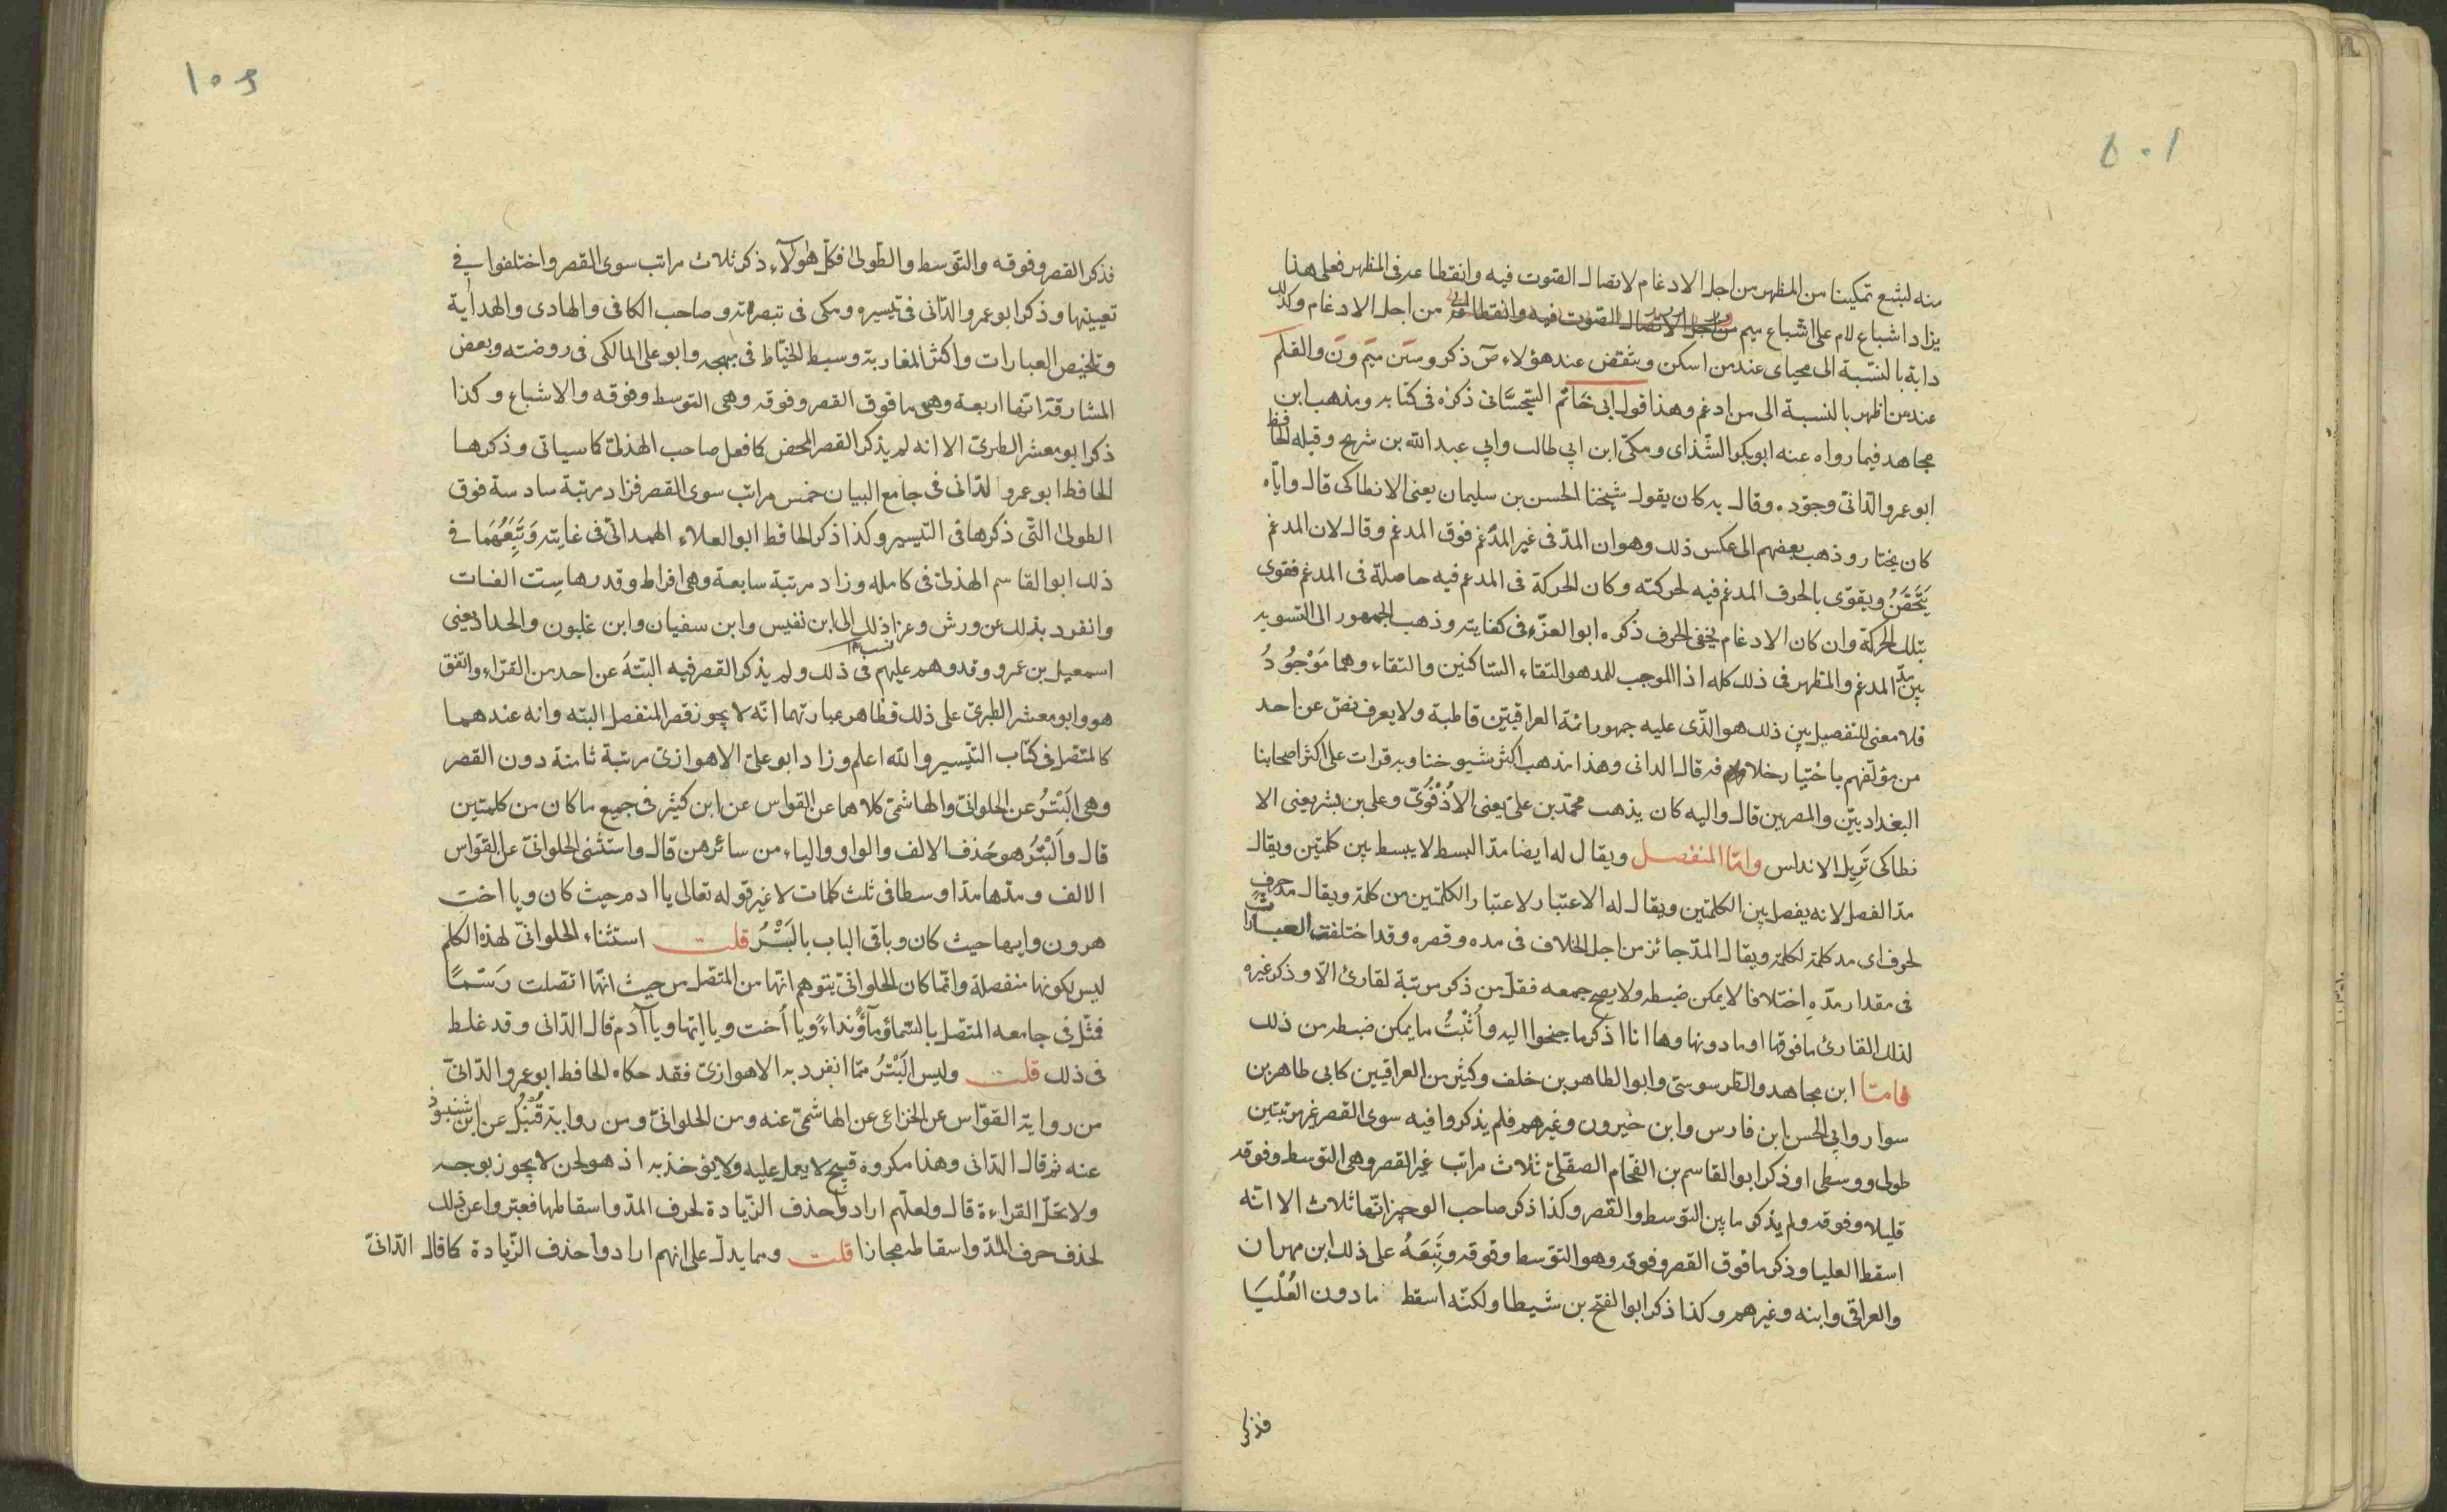 ١٠٥
منه لشبع تمكينا من المظهر من اجل الادغام لاتصال الصوت فيه وانقطاعه فى المظهر فعلى هذا
يزاد اشباع لام على اشباع ميم من اجل الاتصال الصوت فيه وانقطا من اجل الادغام وكذلك
دابة بالنسبة الى محياى عند من اسكن وينقض عند هؤلاء صٓ ذكر وسين ميم ونٓ والقلم
عند من اظهر بالنسبة الى من ادغم وهذا قول ابى حاتم السجستانى ذكره فى كتابه ومذهب ابن
مجاهد فيما رواه عنه ابو بكر الشذاى ومكى ابن ابي طالب وابي عبد الله بن شريح وقبله الحافظ
ابو عمرو الدانى وجوده وقال به كان يقول شيخنا الحسن بن سليمان يعنى الانطاكى قال واياه
كان يختار وذهب بعضهم الى عكس ذلك وهو ان المد فى غير المدغم فوق المدغم وقال لان المدغم
يتحقن ويقوى بالحرف المدغم فيه لحركته وكان الحركة فى المدعم فيه حاصلة فى المدغم فقوى
بتلك الحركة وان كان الادغام يخفى الحرف ذكره ابو العزّ فى كفايته وذهب الجمهور الى التسويه
بين مدّ المدغم والمظهر فى ذلك كله اذا الموجب للمد هو التقاء الساكنين والتقاء وهما مَوْجُودُ
فلا معنى للتفصيل بين ذلك هو الذى عليه جمهور ائمة العراقيين قاطبة ولا يعرف نصّ عن احد
من مؤلفهم باختيار خلافه قال الدانى وهذا مذهب اكثر شيوخنا وبه قرات على اكثر اصحابنا
البغداديين والمصرين قال واليه كان يذهب محمد بن على يعنى الاذْفُوىّ وعلى بن بشر يعنى الا
نطاكى نَزِيل الاندلس وامّا المنفصل ويقال له ايضا مدّ البسط لا يبسط بين كلمتين ويقال
مدّ الفصل لانه يفصل بين الكلمتين ويقال له الاعتبار لاعتبار الكلمتين من كلمة ويقال مد حرفٍ
لحرف اى مد كلمة لكلمة ويقال المدّ جائز من اجل الخلاف فى مده وقصره وقد اختلفت العبارات
فى مقدار مدّه اختلافا لا يمكن ضبطه ولا يصح جمعه فقلّ من ذكر مرتبة لقارئ الّا وذكر غيره
لذلك القارئ ما فوقها او ما دونها وها انا اذكر ما جنحوا اليه واُثْبتُ ما يمكن ضبطه من ذلك
فامّا ابن مجاهد والطرسوسى وابو الطاهر بن خلف وكثير من العراقيين كابى طاهر بن
سوار وابي الحسن ابن فارس وابن خيرون وغيرهم فلم يذكروا فيه سوى القصر غير مرتبتين
طولى ووسطى او ذكر ابو القاسم بن الفحام الصقلى ثلاث مراتب غير القصر وهى التوسط وفوقه
قليلا وفوقه ولم يذكر ما بين التوسط والقصر وكذا ذكر صاحب الوجيز انها ثلاث الا انه
اسقط العليا وذكر ما فوق القصر وفوقه وهو التوسط وفوقه وتَبِعَهُ على ذلك ابن مهران
والعراقى وابنه وغيرهم وكذا ذكر ابو الفتح بن شيطا ولكنه اسقط ما دون العُلْيَا
فذكر
١٠٥
فذكر القصر وفوقه والتوسط والطولى فكلّ هٰؤلآءِ ذكر ثلاث مراتب سوى القصر واختلفوا فى
تعيينها وذكر ابو عمرو الدانى فى تيسيره ومكى فى تبصرته وصاحب الكافى والهادى والهداية
وتلخيص العبارات واكثر المغاربة وسبط الخياط فى مبهجه وابو على المالكى فى روضته وبعض
المشارقة انها اربعة وهى ما فوق القصر وفوقه وهى التوسط وفوقه والاشباع وكذا
ذكر ابو معشر الطبرى الا انه لم يذكر القصر المحض كما فعل صاحب الهذلى كما سياتى وذكرها
الحافظ ابو عمرو الدانى فى جامع البيان خمس مراتب سوى القصر فزاد مرتبة سادسة فوق
الطولى التّى ذكرها فى التيسير وكذا ذكر الحافظ ابو العلاء الهمدانى فى غايته وَتَبِعَهُمَا فى
ذلك ابو القاسم الهذلى فى كامله وزاد مرتبة سابعة وهى افراط وقدرها ست الفات
وانفرد بذلك عن ورش وعزا ذلك الى ابن نفيس وابن سفيان وابن غلبون والحداد يعنى
اسمعيل بن عمرو وقد وهم عليهم فى ذلك ولم يذكر القصر فيه البتة عن احد من القرّاء واتفق
هو وابو معشر الطبرى على ذلك فظاهر عبارتهما انّه لا يجوز قصر المنفصل البته وانه عندهما
كالمتصل فى كتاب التيسير والله اعلم وزاد ابو على الاهوازى مرتبة ثامنة دون القصر
وهى البَتْرُ عن الحلوانىّ والهاشمى كلاهما عن القواس عن ابن كثير فى جميع ما كان من كلمتين
قال والبَتْرُ هو حَذف الالف والواو والياء من سائرهن قال واستثنى الحلوانىّ عن القواس
الالف ومدّها مدّا وسطا فى ثلث كلمات لا غير قوله تعالى يا ادم حيث كان ويا اخت
هرون وايها حيث كان وباقى الباب بالبَتْرُ قلت استثناء الحلوانىّ لهذه الكلم
ليس لكونها منفصلة وانّما كان الحلوانىّ يتوهم انها من المتصل من حيث انّها اتصلت رَسْمًا
فمثّل فى جامعه المتصل بالسّماء وماؤ نداءً ويا أخت ويا ايّها ويا آدم قال الدانى وقد غلط
فى ذلك قلت وليس البَتْرُ ممّا انفرد به الاهوازىّ فقد حكاه الحافظ ابو عمرو الدّانىّ
من رواية القوّاس عن الخزاعى عن الهاشمى عنه ومن الحلوانىّ ومن رواية قُنْبُل عن ابن شنبوذ
عنه ثم قال الدانى وهذا مكروه قبيح لا يعمل عليه ولا يؤخذ به اذ هو لحن لا يجوز بوجه
ولا تحلّ القراءة قال ولعلّهم ارادوا حذف الزّيادة لحرف المدّ واسقاطها فعبّروا عن ذلك
لحذف حرف المدّ واسقاطه مجازا قلت ومما يدلّ على انهم ارادوا حذف الزّيادة كما قال الدّانىّ